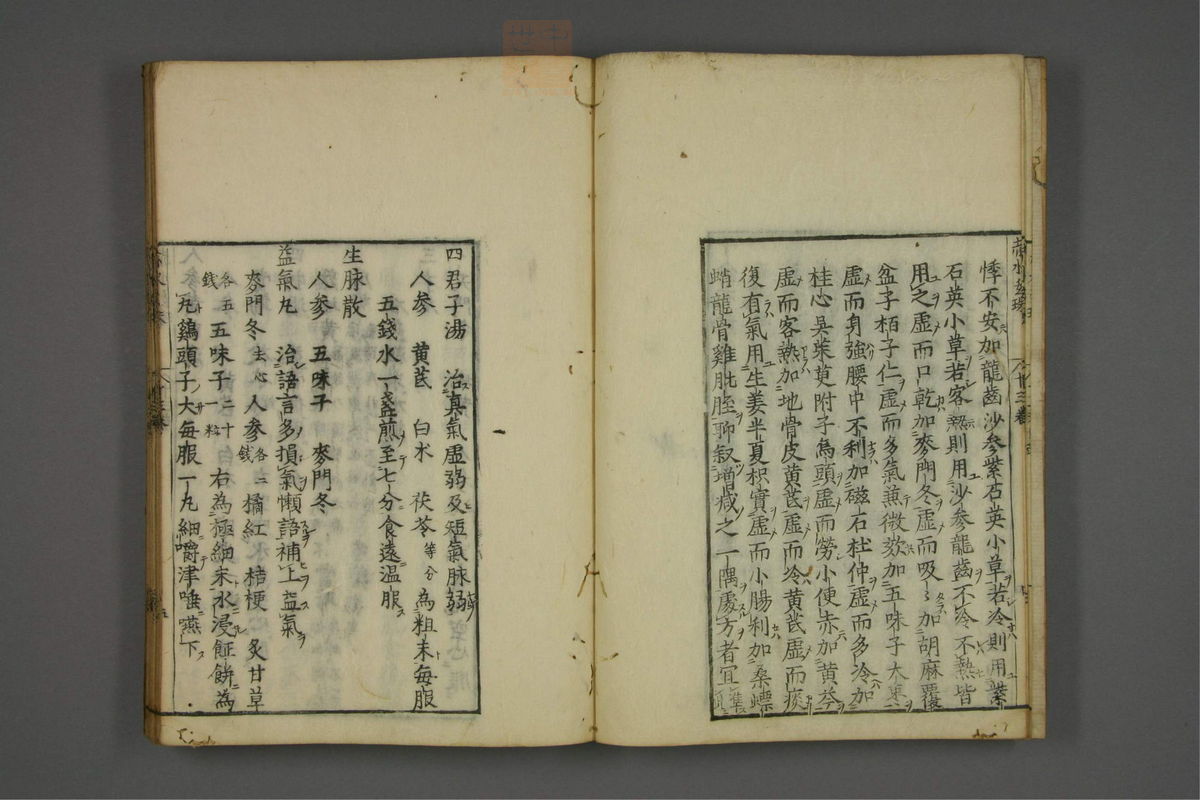 悸不安加龍齒沙參紫石英小草若冷則用紫
石英小草若客熱則用沙參龍齒不冷不熱皆
用之虛而口乾加麥門冬虛而吸〻加胡麻覆
盆子栢子仁虛而多氣兼微欬加五味子大棗
虛而身強腰中不利加磁石杜仲虛而多冷加
桂心吳茱萸附子烏頭虛而勞小便赤加黃芩
虛而客熱加地骨皮黃芪虛而冷黃芪虛而痰
復有氣用生姜半夏枳實虛而小腸利加桑螵
蛸龍骨雞肶胵聊叙增减之一隅處方者宜
四君子湯　治真氣虛弱及短氣脉弱
人參　黃芪　白朮　茯苓等分　為粗末每服
五錢水一盞煎至七分食遠溫服
生脉散
人參　五味子　麥門冬
益氣丸　治語言多損氣懶語補上益氣
麥門冬去心　人參各二錢　橘紅　桔梗　炙甘草
各五錢　五味子二十一粒　右為極細末水浸飪餅為
丸鷄頭子大每服一丸細嚼津唾嚥下